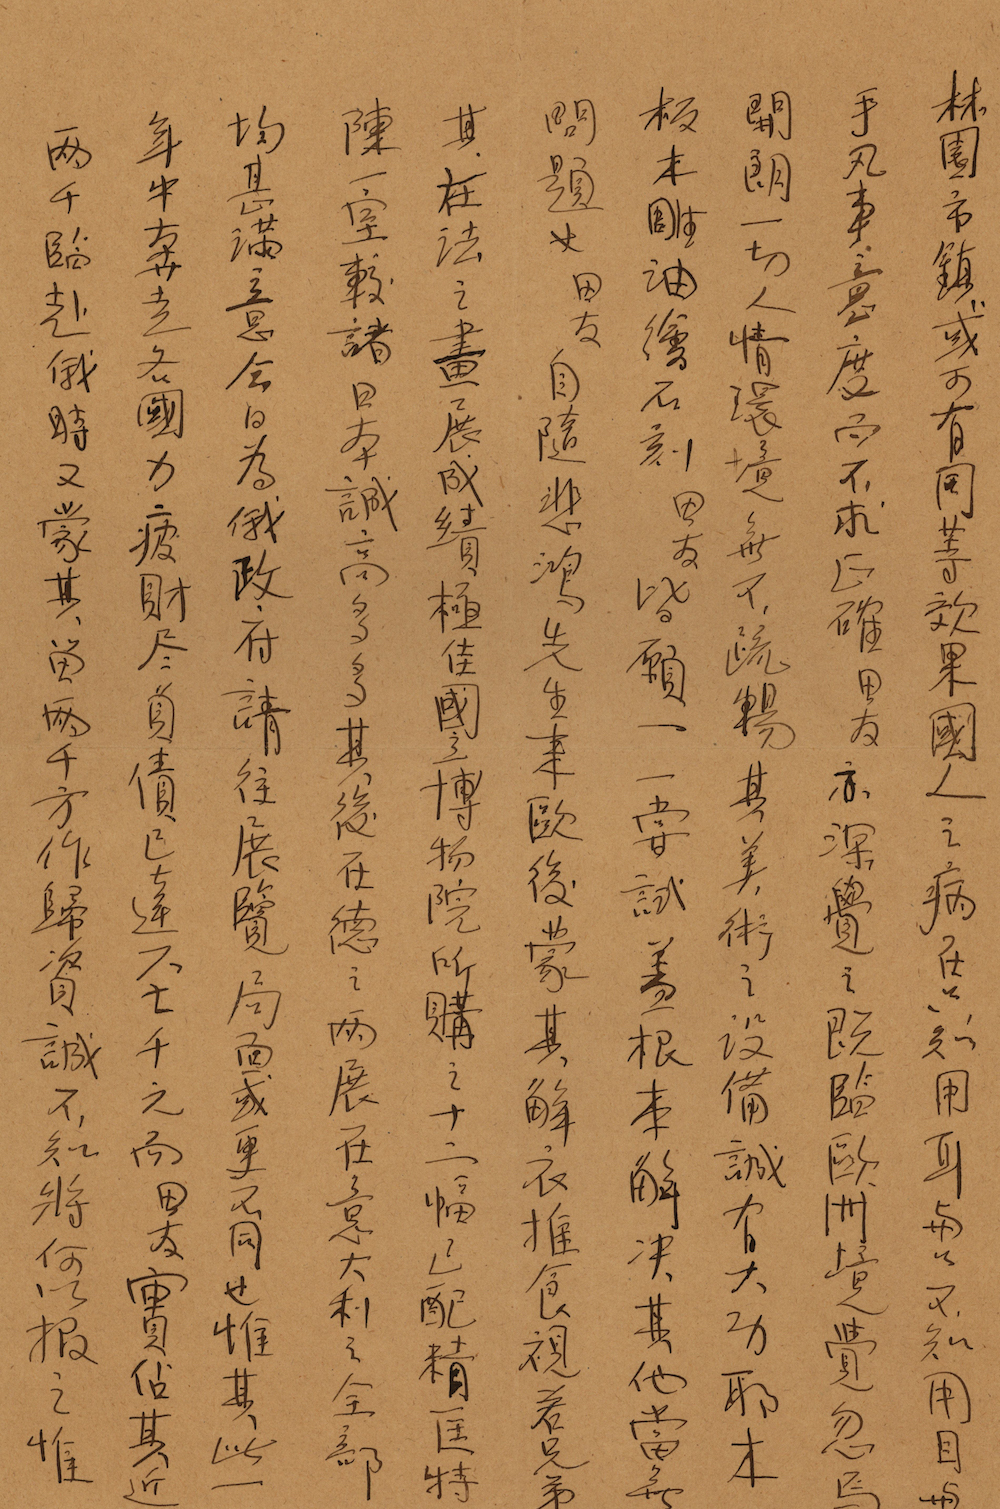 林園市鎮或可有同等效果國人之病在只知用耳與口不知用目與
手凡事意度而不求正確男友亦深覺之既臨歐洲境覺忽焉
開朗一切人情環境無不疏暢其美術之設備誠有大功耶木
板木雕油繪石刻男友皆願一一嘗試蓋根本解決其他當無
問題也男友自隨悲鴻先生來歐後蒙其解衣推食視若兄弟
其在法之畫展成績極佳國立博物院所購之十二幅已配精匡特
陳一室較諸日本誠高多多其後在德之兩展在意大利之全部
均甚滿意今日為俄政府請往展覽局面或更不同也惟其此一
年中奔走各國力疲財尽負債已達不七千元而男友實佔其近
兩千臨赴俄時又蒙其留兩千方作歸資誠不知將何以報之惟